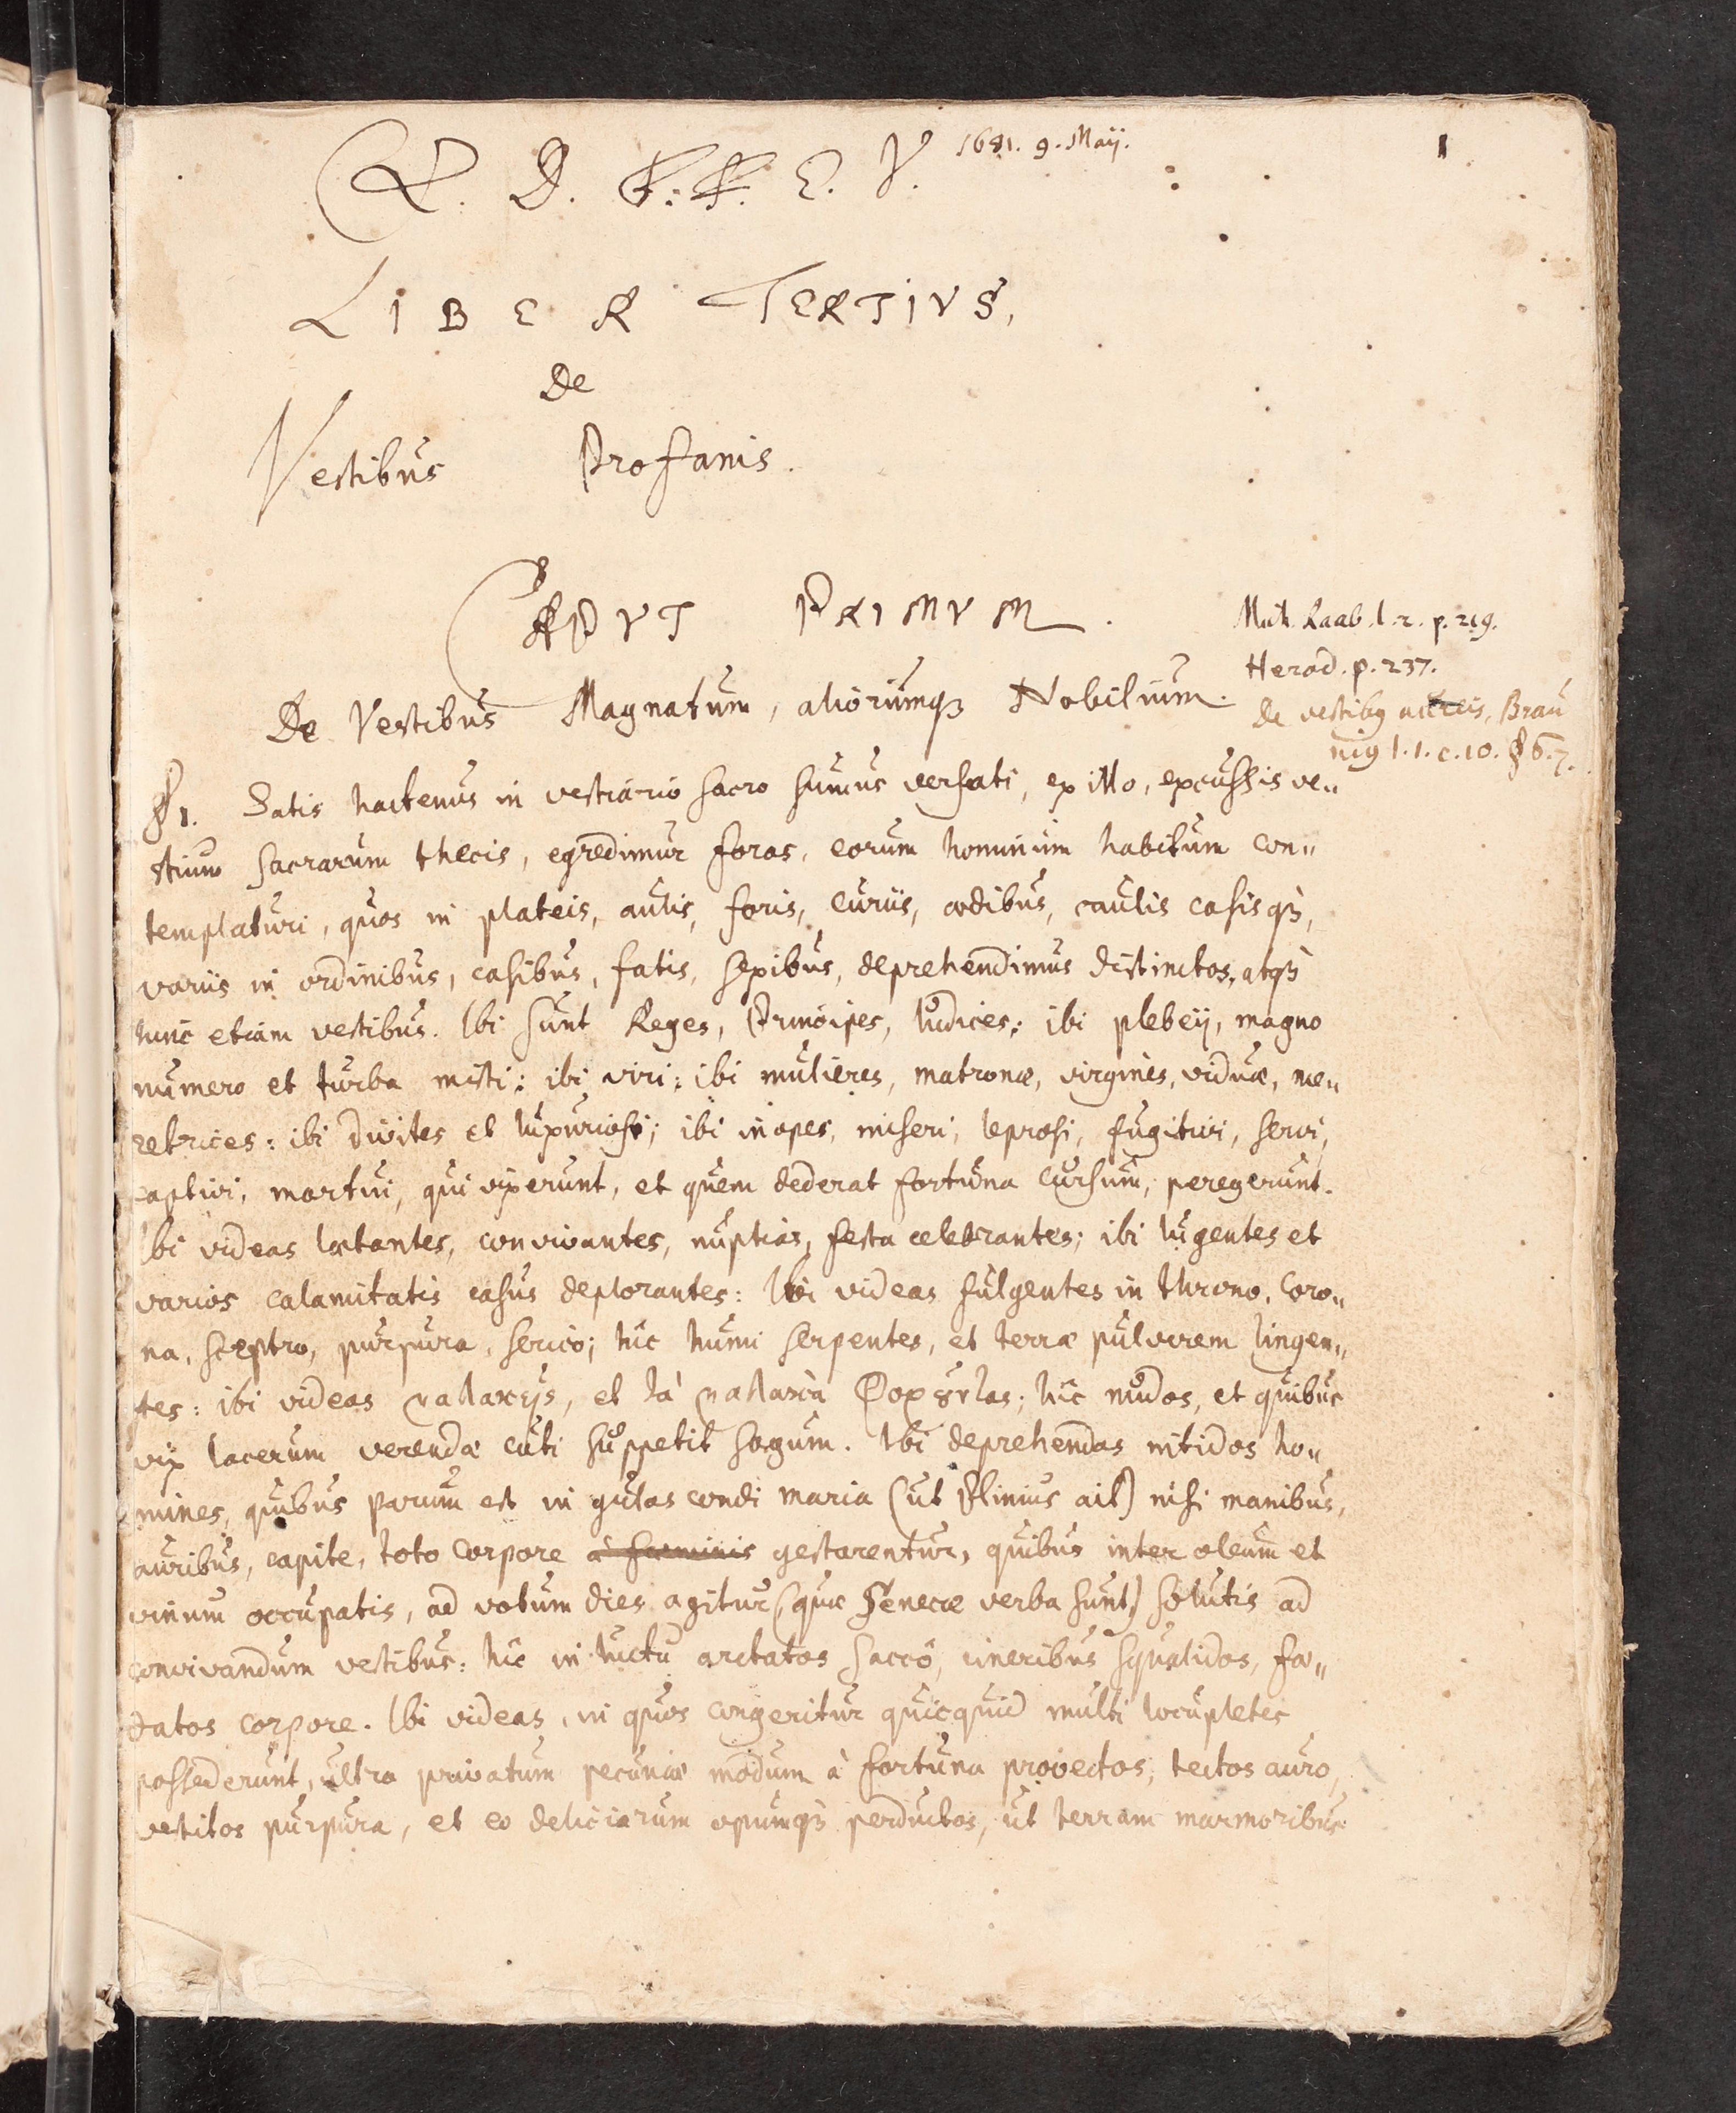 Q. D. F. F. E. V. 1681. 9. Maij.
1
LIBER TERTIVS,
De
Vestibus Profanis.
CAPVT PRIMVM.
De Vestibus Magnatum, aliorumq;3 Nobilium.
Herod. p. 237.
De vestibq Brau
niq l. 1. c. 10. § 6. 7.
§ 1. Satis hactenus in vestiario sacro sumus versati, ex illo, excussis ve„
stium sacrarum thecis, egredimur foras, eorum hominum habitum con„
templaturi, quos in plateis, aulis, foris, curiis, ædibus, caulis casisq3,
variis in ordinibus, casibus, fatis, sexibus, deprehendimus distinctos, atq3
hinc etiam vestibus. Ibi sunt Reges, Principes, Iudices; ibi plebeij, magno
numero et turba misti; ibi viri; ibi mulieres, matronæ, virgines, viduæ, me„
retrices: ibi divites et luxuriosi; ibi inopes, miseri, leprosi, fugitivi, servi,
captivi, mortui, qui vixerunt, et quem dederat fortuna cursum, peregerunt.
Ibi videas lætantes, convivantes, nuptias, festa celebrantes; ibi lugentes et
varios calamitatis casus deplorantes: Ibi videas fulgentes in throno, coro„
na, sceptro, purpura, serico; hic humi serpentes, et terræ pulverem lingen„
tes: ibi videas et hic nudos, et quibus
vix lacerum verendæ cuti suppetit sagum. Ibi deprehendas nitidos ho„
mines, quibus parum est in gulas condi maria (ut Plinius ait) nisi manibus,
auribus, capite, toto corpore à fœminis gestarentur, quibus inter oleum et
vinum occupatis, ad votum dies agitur (quæ Senecæ verba sunt) solutis ad
convivandum vestibus: hic in luctu arctatos sacco, cineribus squalidos, fœ„
datos corpore. Ibi videas, in quos congeritur quicquid multi locupletes
possederunt, ultra privatum pecuniæ modum à fortuna provectos, tectos auro,
vestitos purpura, et eo deliciarum opumq3 perductos, ut terram marmoribus